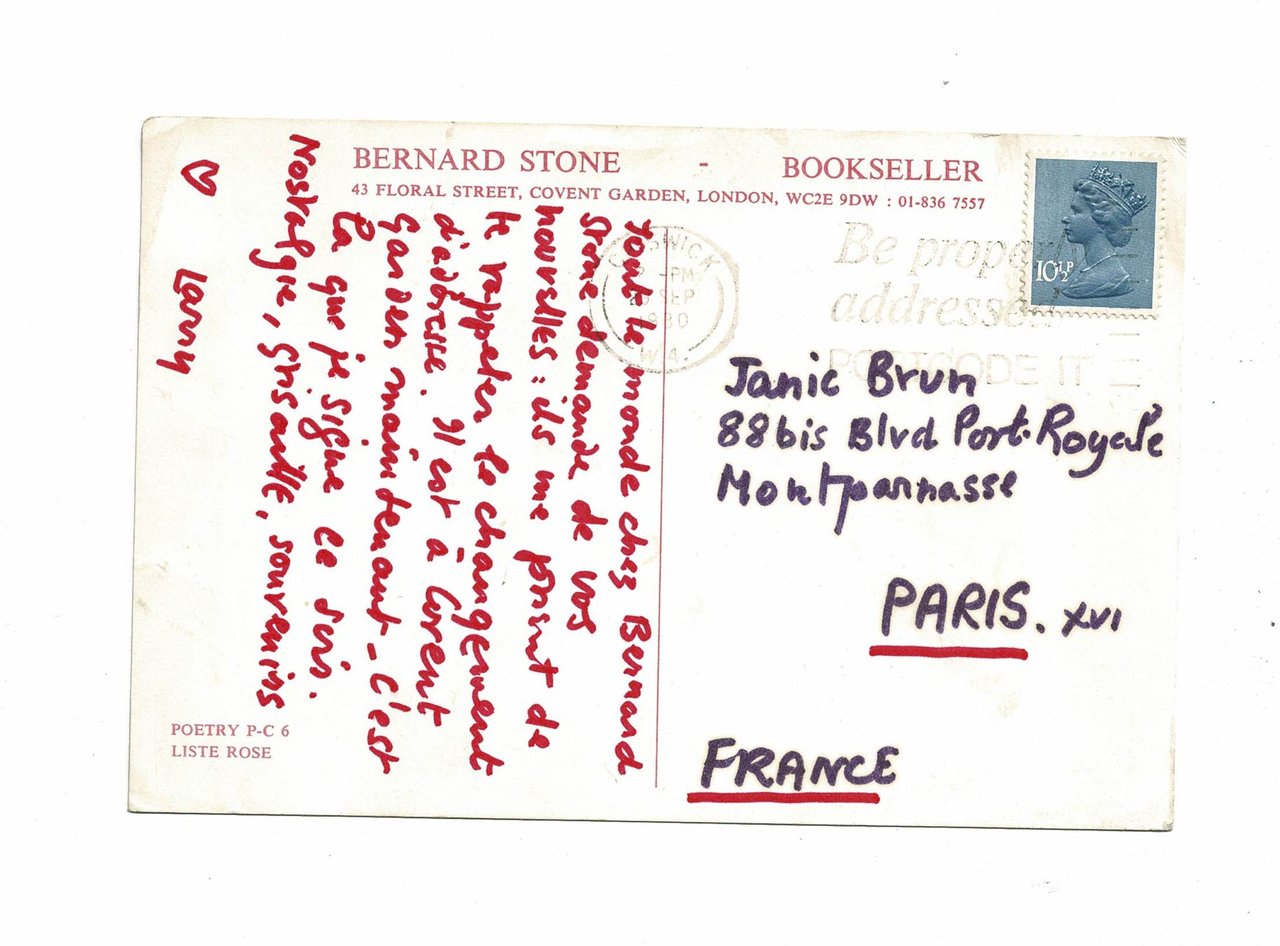 BERNARD STONE - BOOKSELLER
43 FLORAL STREET, COVENT GARDEN, LONDON, WC2E 9DW : 01-836 7557
Tout le monde chez Bernard
Stone demande de vos
nouvelles : ils me prient de
te rappeler le changement
d'adresse. Il est à Covent
Garden maintenant - C'est
là que je signe ce soir.
Nostalgie, grisaille, souvenirs
♡ Larry
POETRY P-C 6
LISTE ROSE
CHISWICK
PM
SEP
1980
W4.
Be properly
addressed
POSTCODE IT
10½P
Janic Brun
88bis Blvd Port-Royale
Montparnasse
PARIS. XVI
FRANCE